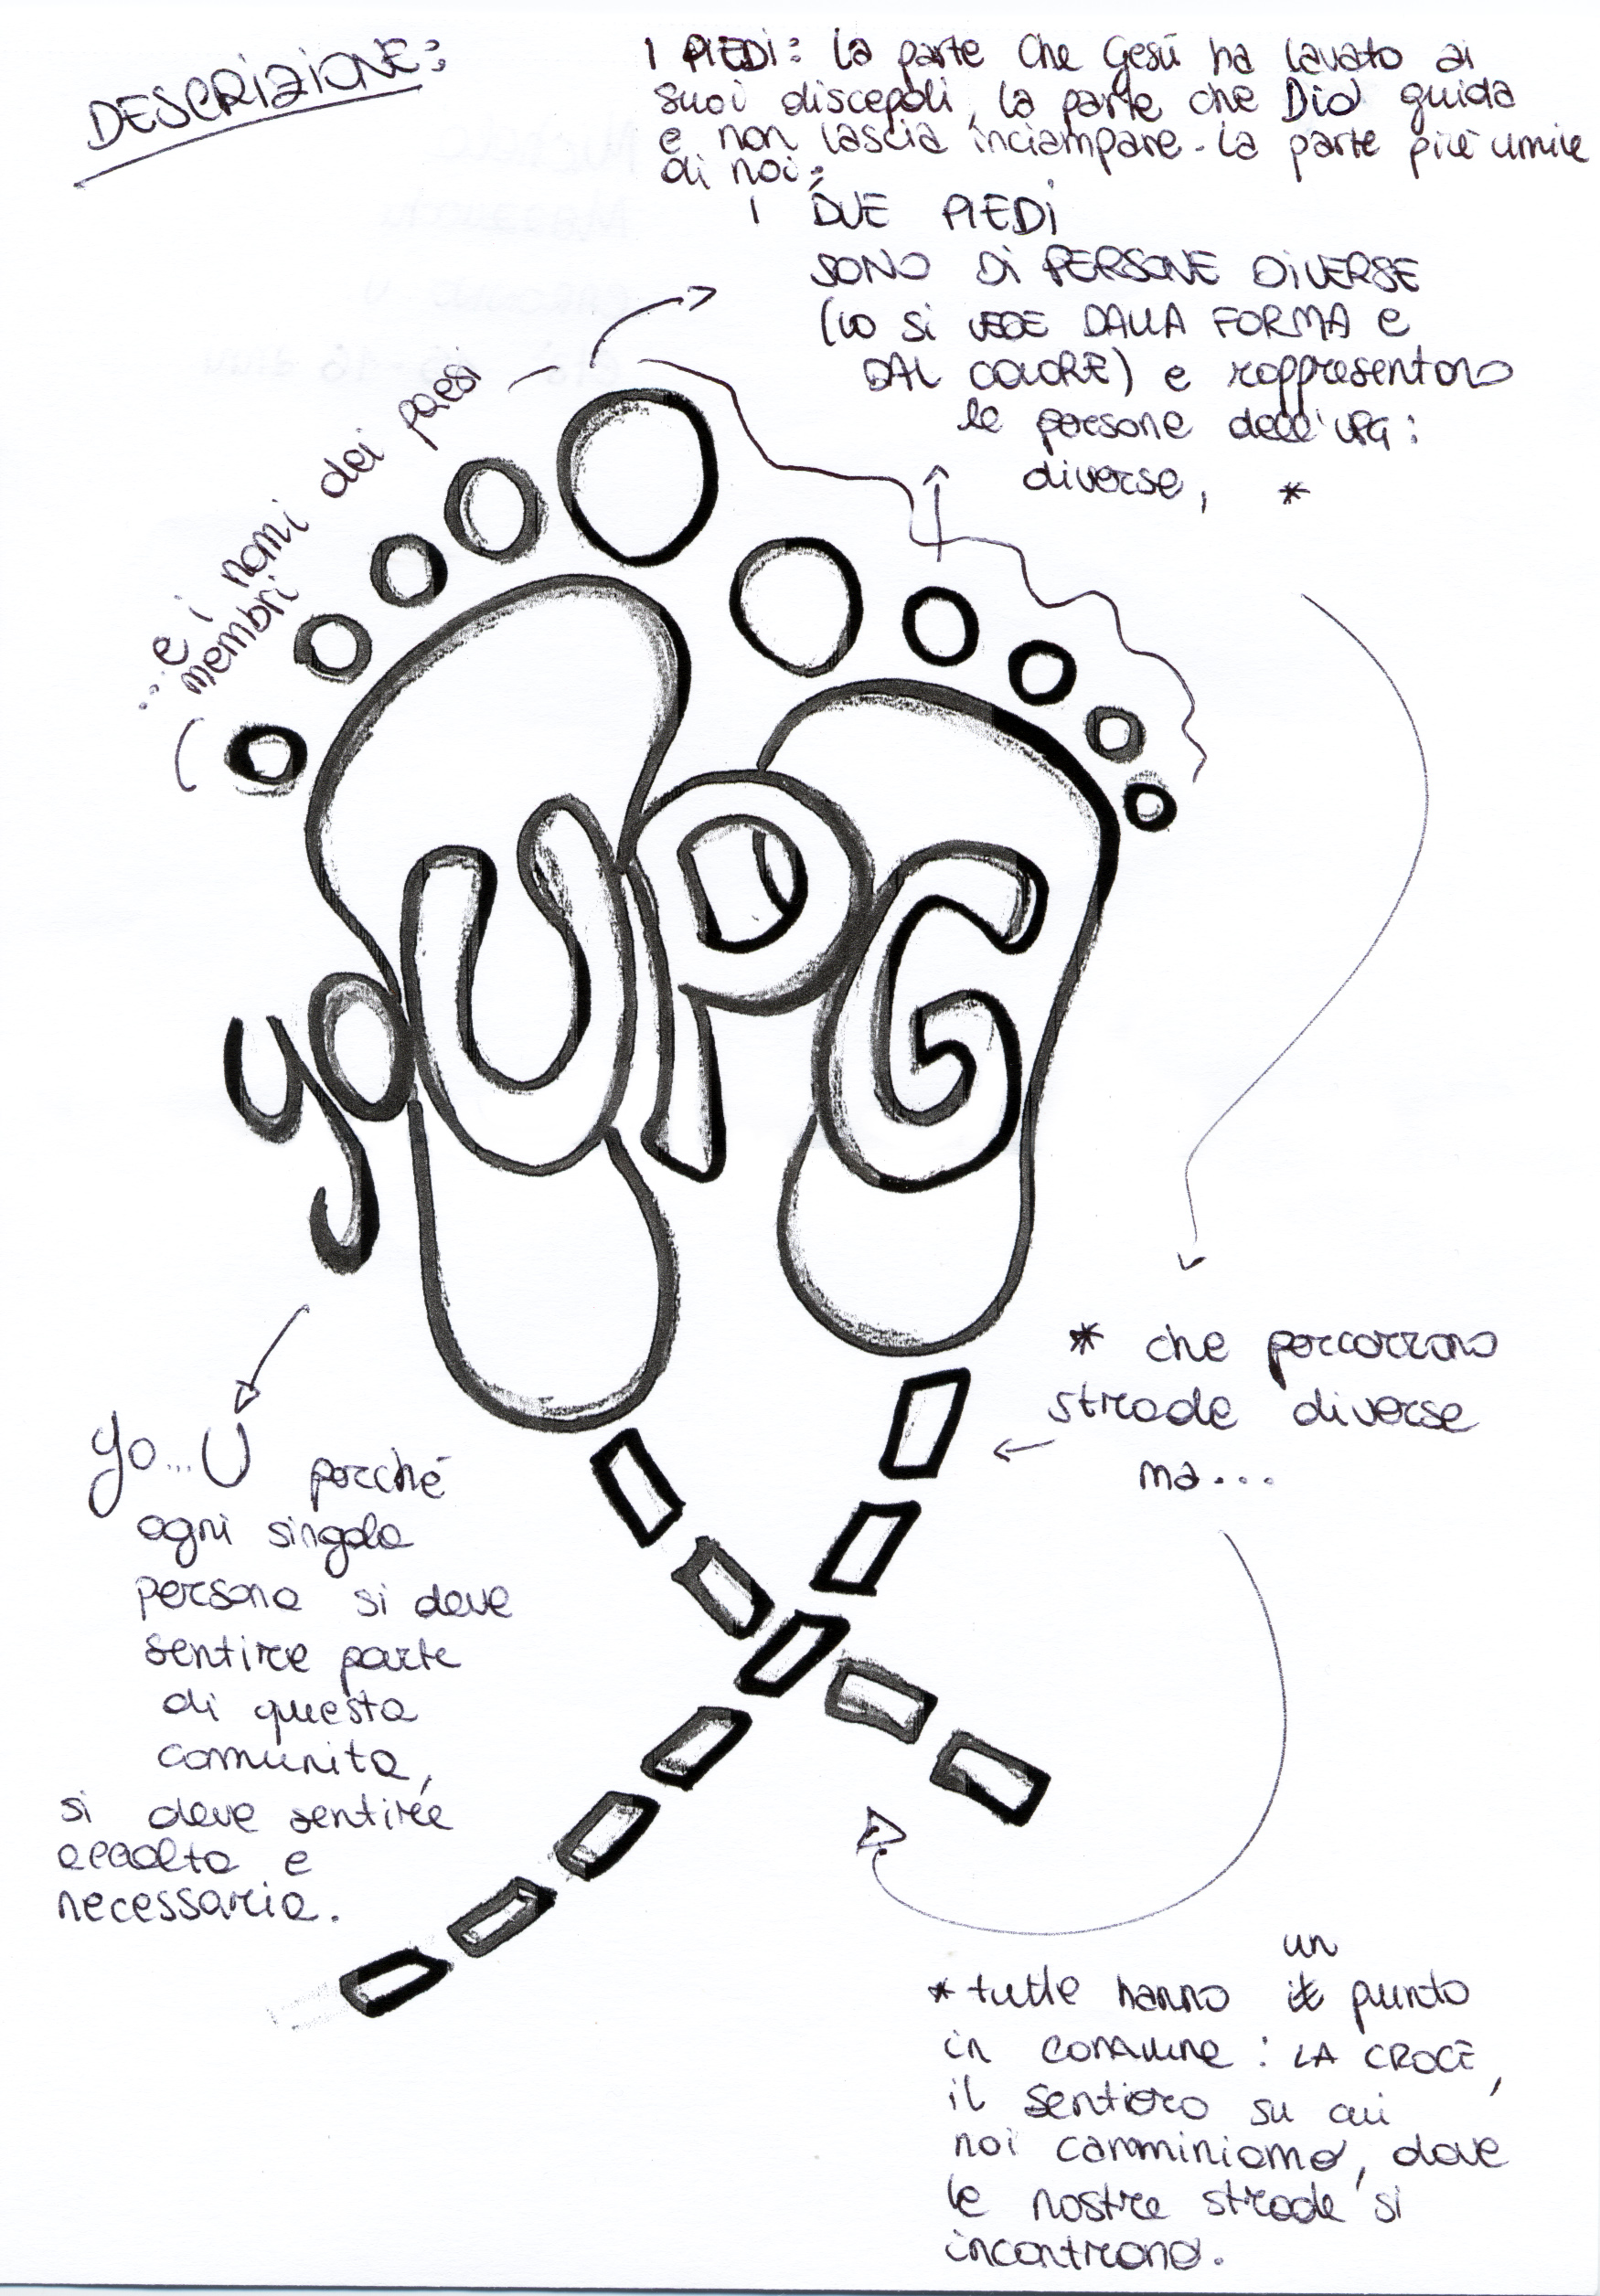 DESCRIZIONE:
I PIEDI: la parte che Gesù ha lavato ai
suoi discepoli, la parte che Dio guida
e non lascia inciampare. La parte più umile
di noi:
I DUE PIEDI
SONO DI PERSONE DIVERSE
(lo si VEDE DALLA FORMA e
DAL COLORE) e rappresentano
le persone dell'UPG:
diverse, *
...e i nomi dei paesi
membri
yo UPG
* che percorrono
strade diverse
ma...
yo...U perché
ogni singola
persona si deve
sentire parte
di questa
comunità,
si deve sentire
accolta e
necessaria.
un
* tutte hanno il punto
in comune: LA CROCE,
il sentiero su cui
noi camminiamo, dove
le nostre strade si
incontrano.